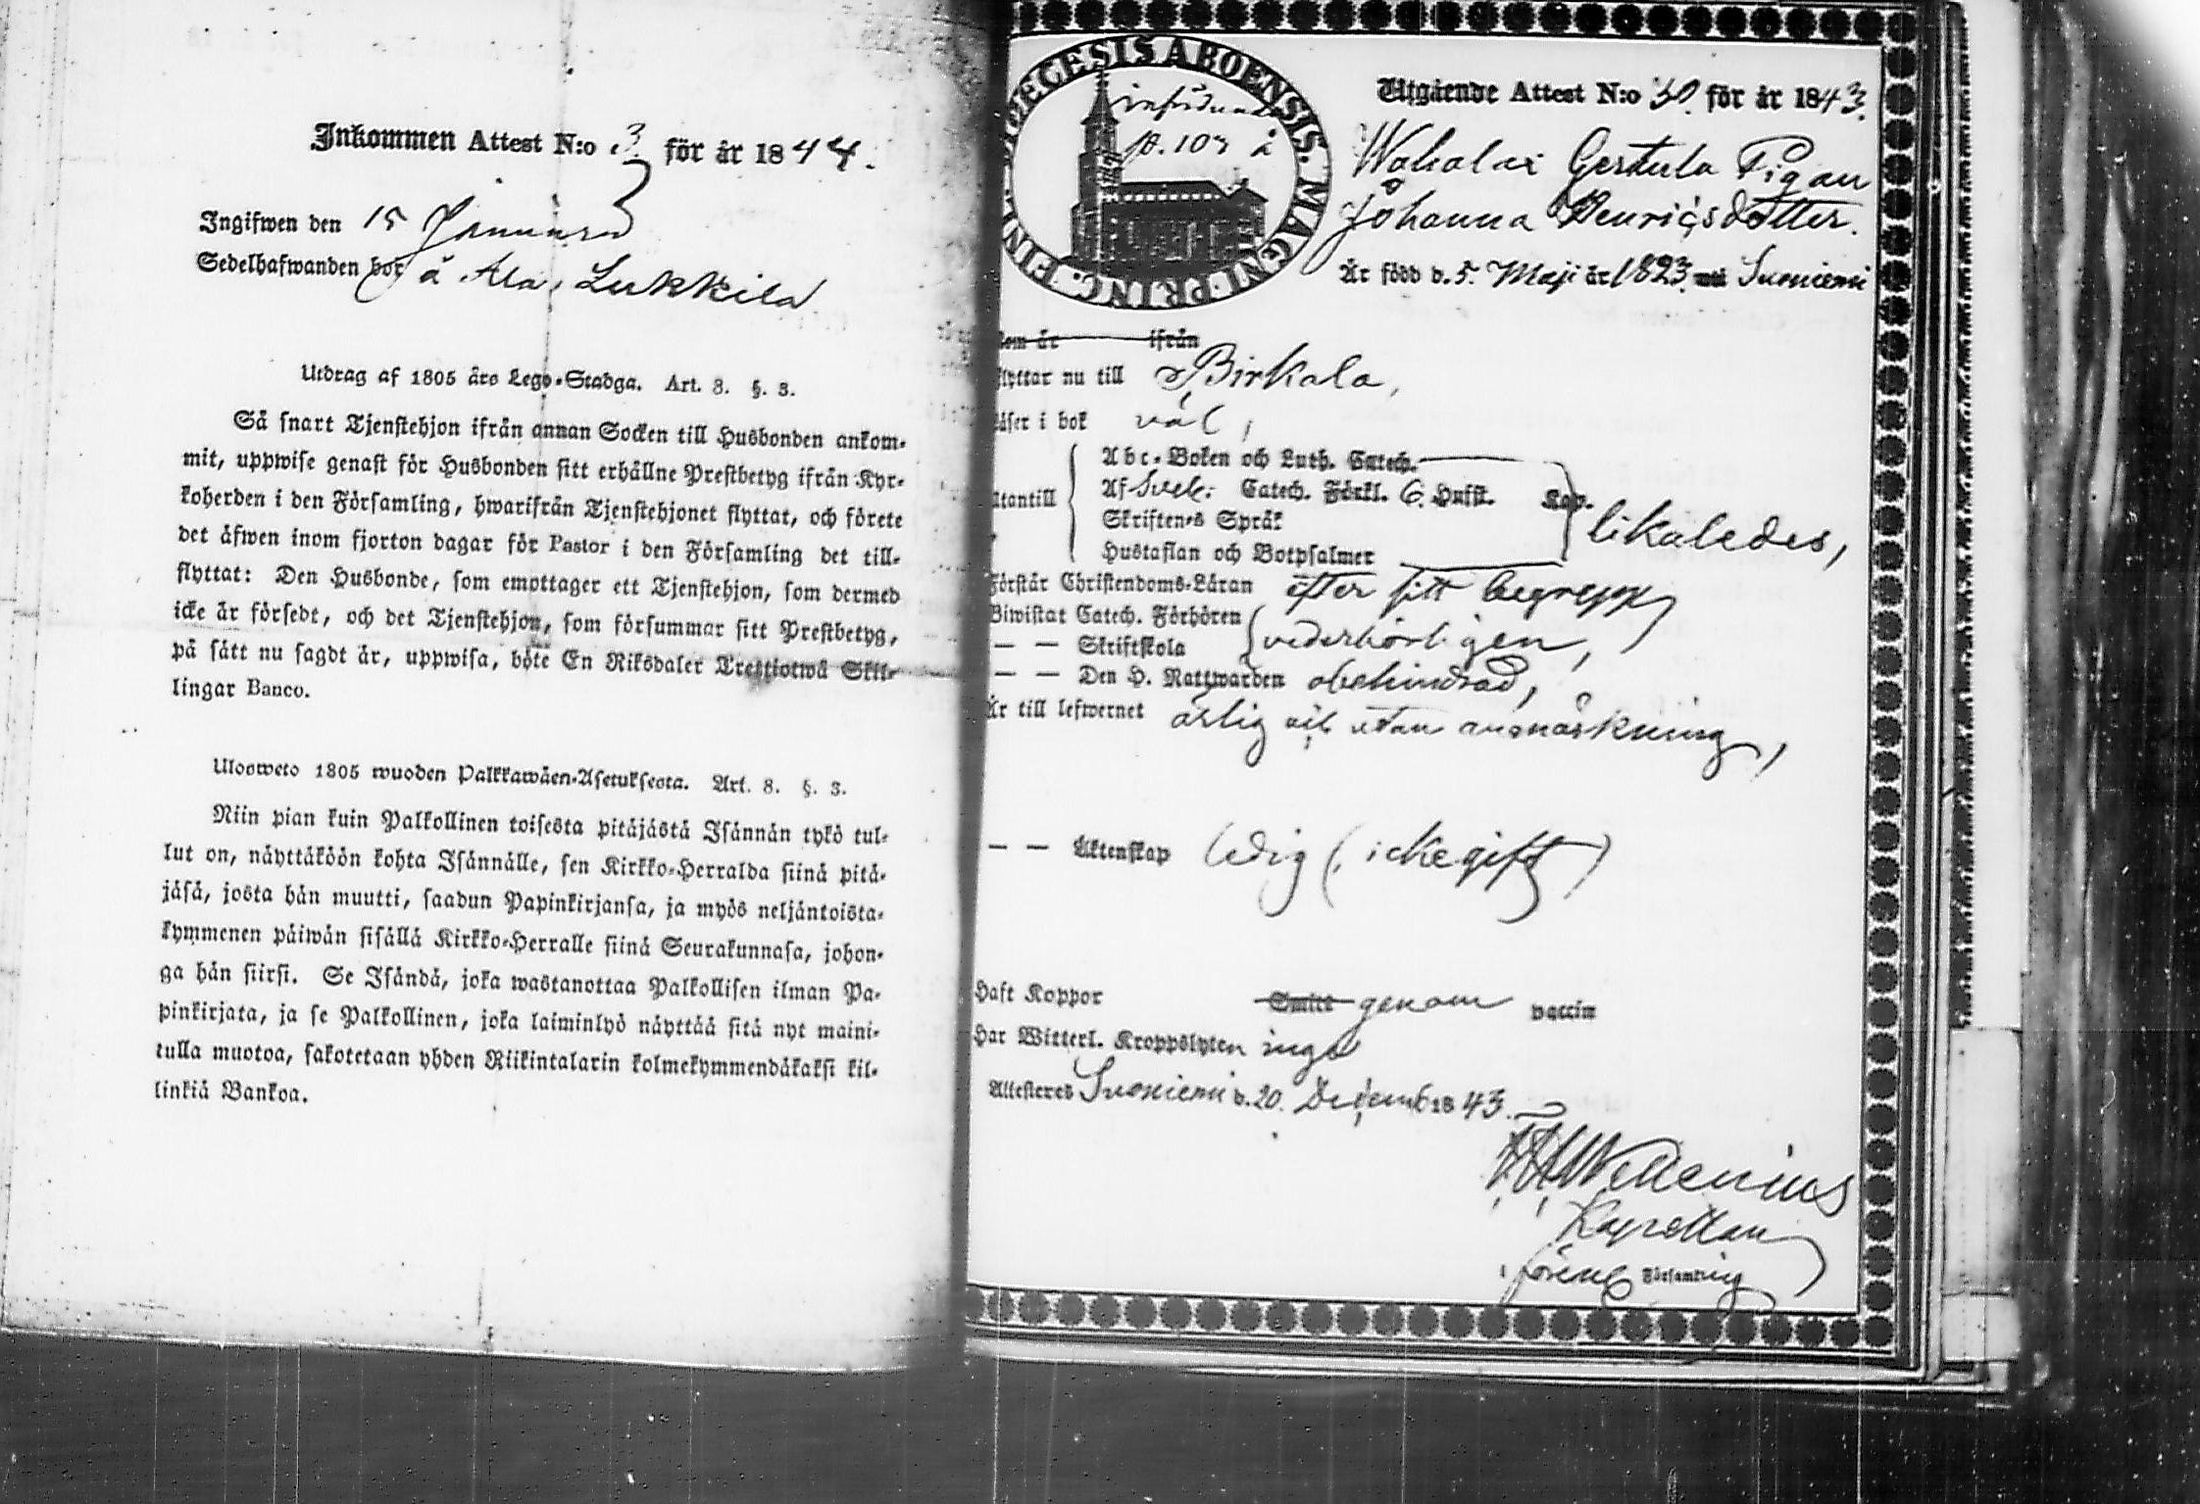 Inkommen Attest N:o 3 för år 1844.
Ingifwen den 15 Januarii
Sedelhafwanden bor å Ala, Lukkila
Utdrag af 1805 års Lego-Stadga. Art. 8. §. 3.
Så snart Tjenstehjon ifrån annan Socken till Husbonden ankom-
mit, uppwise genast för Husbonden sitt erhållne Prestbetyg ifrån Kyr-
koherden i den Församling, hwarifrån Tjenstehjonet flyttat, och förete
det äfwen inom fjorton dagar för Pastor i den Församling det till-
flyttat: Den Husbonde, som emottager ett Tjenstehjon, som dermed
icke är försedt, och det Tjenstehjon, som försummar sitt Prestbetyg,
på sätt nu sagdt är, uppwisa, böte En Riksdaler Trettiotwå Skil-
lingar Banco.
Ulosweto 1805 wuoden Palkkawäen-Asetuksesta. Art. 8. §. 3.
Niin pian kuin Palkollinen toisesta pitäjästä Isännän tykö tul-
lut on, näyttäköön kohta Isännälle, sen Kirkko-Herralda siinä pitä-
jäsä, josta hän muutti, saadun Papinkirjansa, ja myös neljäntoista-
kymmenen päiwän sisällä Kirkko-Herralle siinä Seurakunnasa, johon-
ga hän siirsi. Se Isändä, joka wastanottaa Palkollisen ilman Pa-
pinkirjata, ja se Palkollinen, joka laiminlyö näyttää sitä nyt maini-
tulla muotoa, sakotetaan yhden Riikintalarin kolmekymmendäkaksi kil-
linkiä Bankoa.
DIOECESIS ABOENSIS. MAGNI PRINC. FINL.
införd
p. 103 å
Utgående Attest N:o 30 för år 1843.
Wahalax Gertula Pigan
Johanna Henricsdotter.
Är född d. 5. Maji år 1823 Suoniemi
kom år ifrån
flyttar nu till Birkala,
läser i bok väl,
utantill
Abc-Boken och Luth. Catech.
Af Sveb: Catech. Förkl. 6. Hufst. Kap.
Skriftenes Språk
Hustaflan och Botpsalmer
likaledes,
Förstår Christendoms-Läran efter sitt begrepp,
Biwistat Catech. Förhören
— — Skriftskola
vederbörligen,
— — Den H. Nattwarden obehindrad,
Är till lefwernet ärlig och utan anmärkning,
— — Äktenskap ledig (icke gift)
Haft Koppor Smitt genom vaccin
Har Witterl. Kroppslyten inga
Attesteres Suoniemi d. 20. Decemb 1843.
Kapellan
i förene Församling